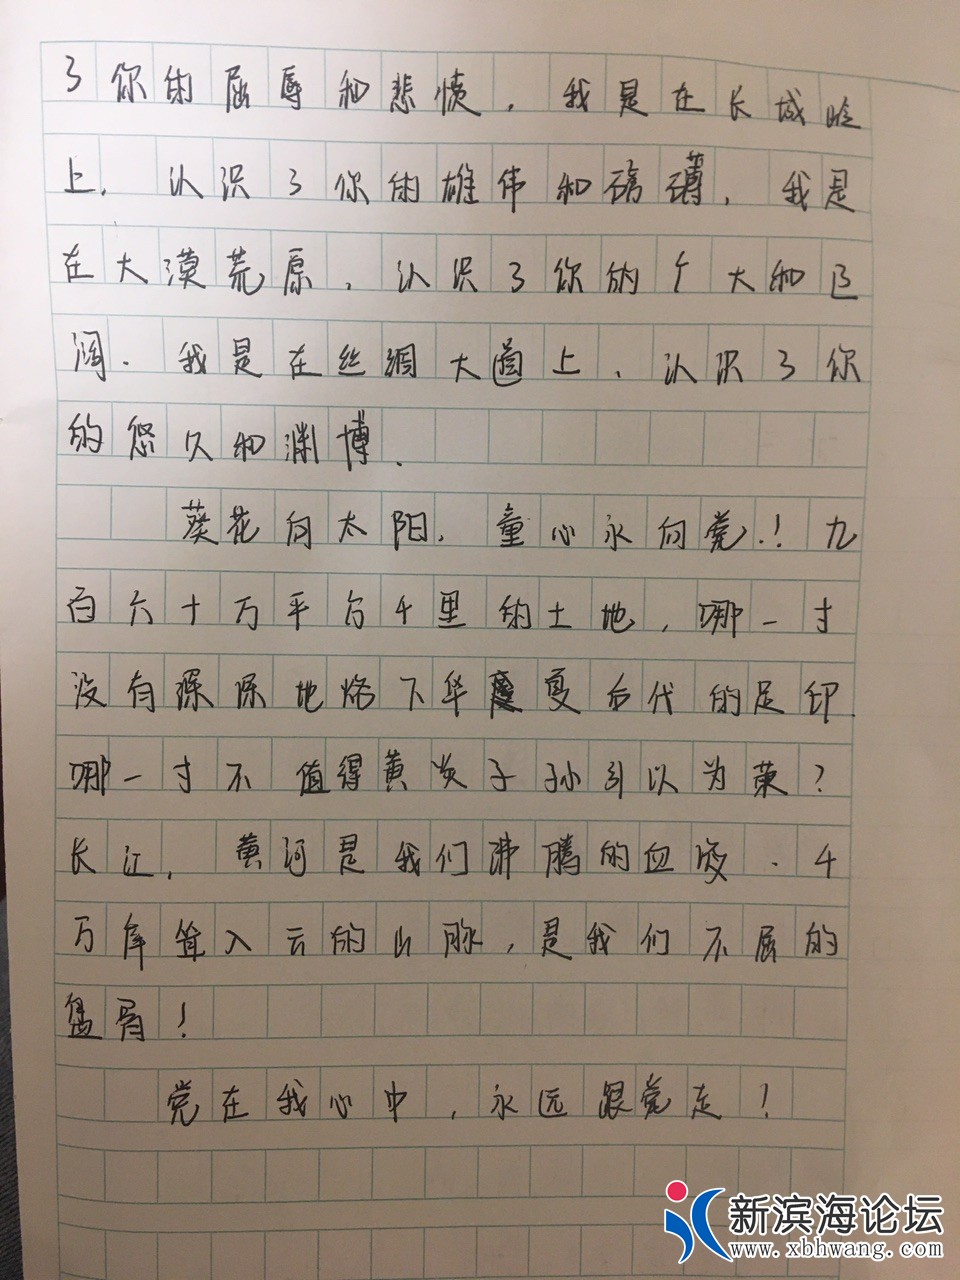 了你的屈辱和悲愤，我是在长城
上，认识了你的雄伟和磅礴，我是
在大漠荒原，认识了你的个大和巴
阔．我是在丝绸大道上，认识了你
的悠久和渊博．
葵花向太阳，童心永向党！九
百六十万平方千里的土地，哪一寸
没有深深地烙下华夏后代的足印
哪一寸不值得黄炎子孙引以为荣？
长江，黄河是我们沸腾的血液．千
万座耸入云的山脉，是我们不屈的
！
党在我心中，永远跟党走！
新滨海论坛
www.xbhwang.com